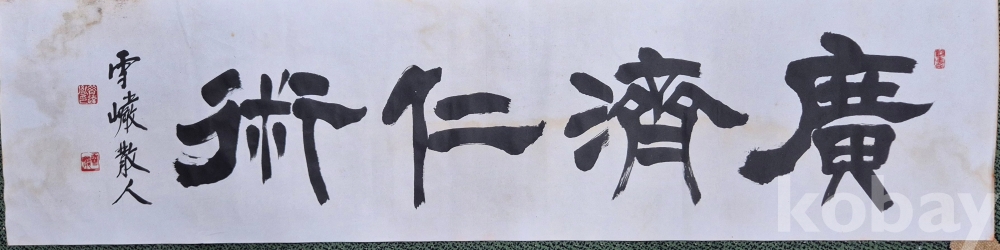 廣濟仁術
雪巖散人
kobay